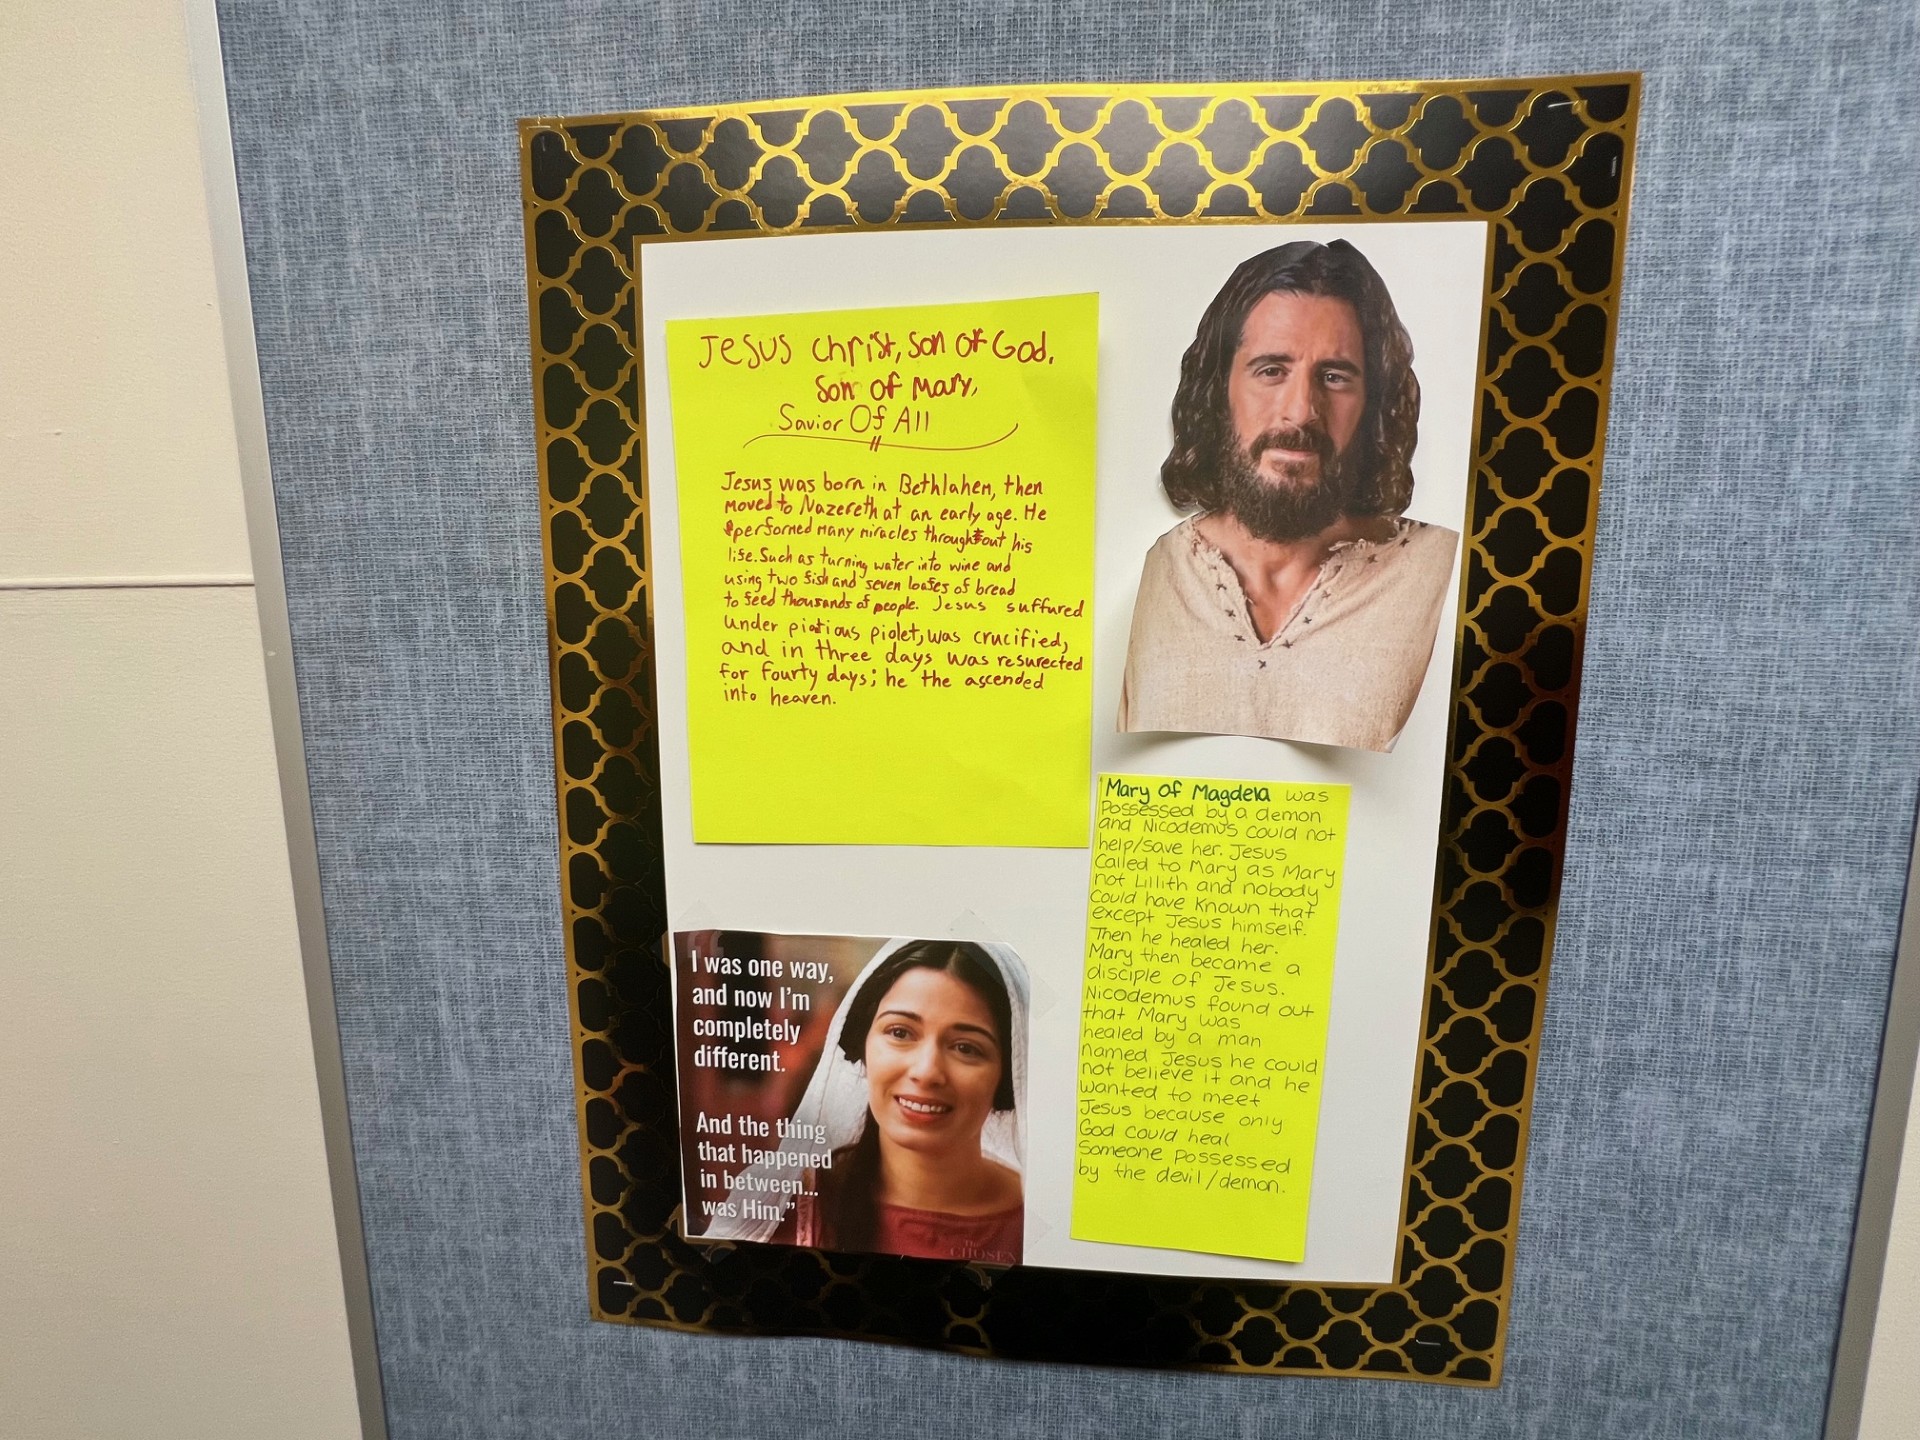 Jesus Christ, Son of God,
Son of Mary,
Savior Of All
Jesus was born in Bethlahem, then
moved to Nazereth at an early age. He
performed many miracles throughout his
life. Such as turning water into wine and
using two fish and seven loafes of bread
to feed thousands of people. Jesus suffured
under piotious piolet, was crucified,
and in three days was resurected
for fourty days; he the ascended
into heaven.
Mary of Magdela was
Possessed by a demon
and Nicodemus could not
help/save her. Jesus
Called to Mary as Mary
not Lillith and nobody
Could have Known that
except Jesus himself.
Then he healed her.
Mary then became a
disciple of Jesus.
Nicodemus found out
that Mary was
healed by a man
named Jesus he could
not believe it and he
wanted to meet
Jesus because only
God could heal
Someone Possessed
by the devil/demon.
I was one way,
and now I'm
completely
different.
And the thing
that happened
in between...
was Him."
The
CHOSEN